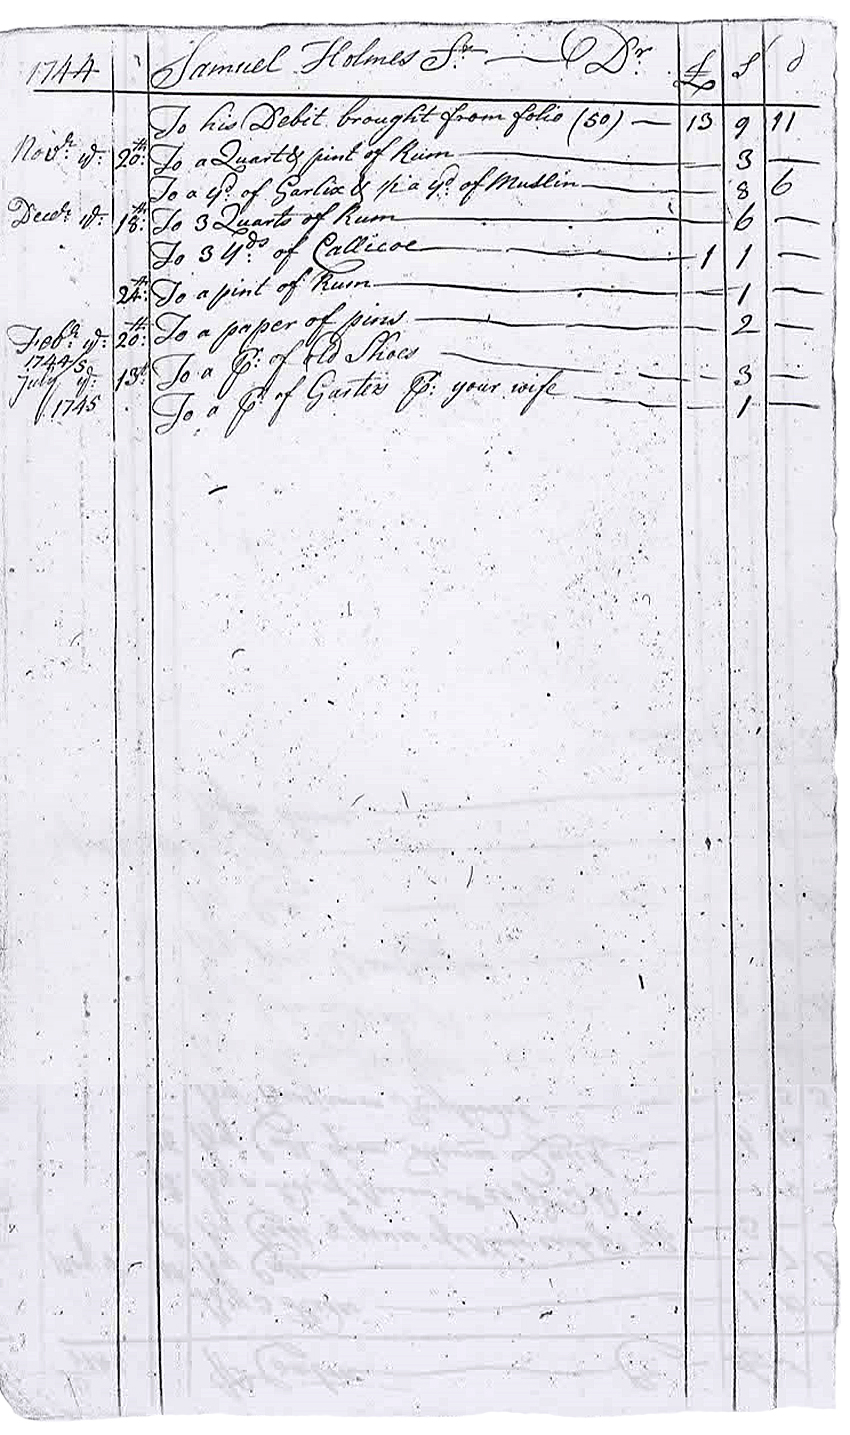 1744 Samuel Holmes Sr. Dr. £ S d
To his Debit brought from folio (50) — 13 9 11
Novr. ye. 20th: To a Quart & pint of Rum — 3 —
To a yd. of Garlix & 1/2 a yd. of Muslin — 8 6
Decr. ye. 18th: To 3 Quarts of Rum — 6 —
To 3 Yds. of Callicoe — 1 1 —
24th: To a pint of Rum — 1 —
Feba. ye. 20th: To a paper of pins — 2 —
1744/5
July ye. 13th To a Pr. of old Shoes — 3 —
1745 To a Pr. of Garters Pr. your wife — 1 —